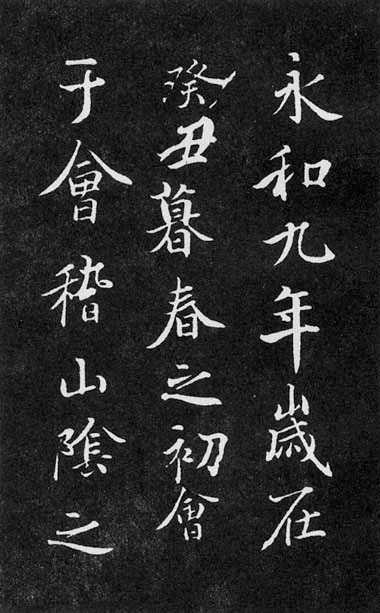 永和九年歲在
癸丑暮春之初會
于會稽山陰之